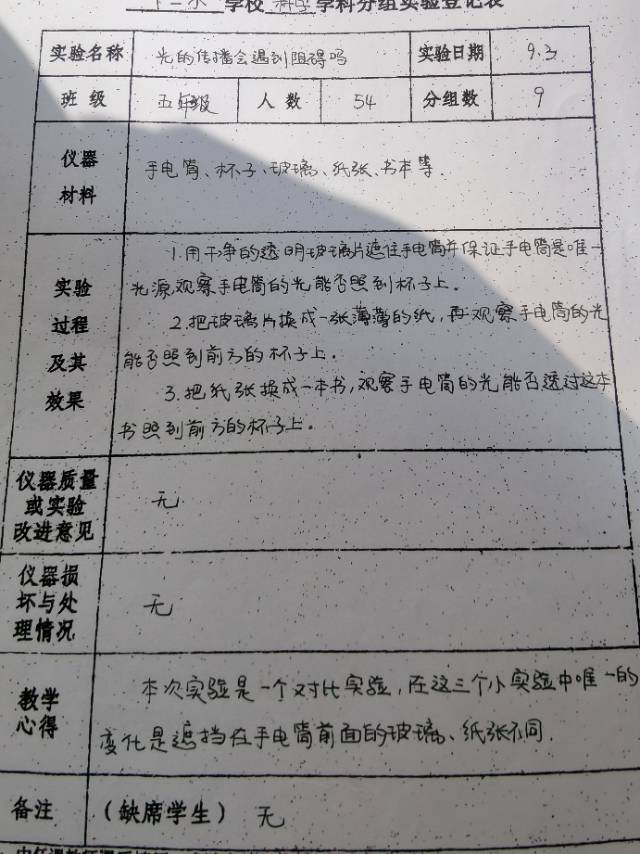 学校 科学 学科分组实验登记表
实验名称 光的传播会遇到阻碍吗 实验日期 9.3
班级 五年级 人数 54 分组数 9
仪器材料 手电筒、杯子、玻璃、纸张、书本等.
实验过程及其效果
1.用干净的透明玻璃片遮住手电筒并保证手电筒是唯一
光源观察手电筒的光能否照到杯子上。
2.把玻璃片换成一张薄薄的纸,再观察手电筒的光
能否照到前方的杯子上。
3.把纸张换成一本书,观察手电筒的光能否透过这本
书照到前方的杯子上。
仪器质量
或实验
改进意见
无
仪器损
坏与处
理情况
无
教学
心得
本次实验是一个对比实验,在这三个小实验中唯一的
变化是遮挡在手电筒前面的玻璃、纸张不同.
备注 (缺席学生) 无